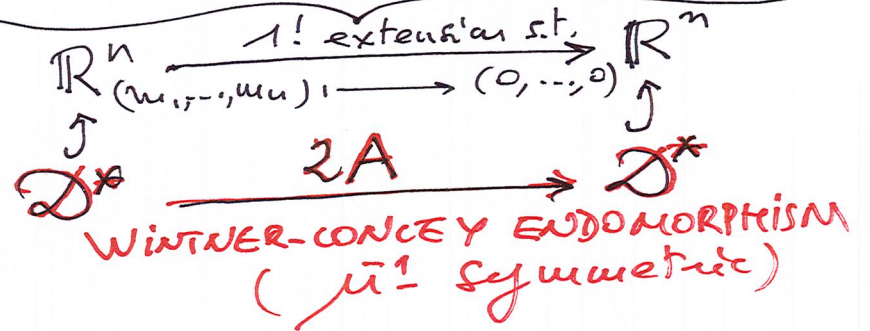 ℝⁿ 1! extension s.t. ℝⁿ
(m₁,...,mₙ) ↦ (0,...,0)
𝒟* 2A 𝒟*
WINTNER-CONLEY ENDOMORPHISM
(μ⁻¹ symmetric)